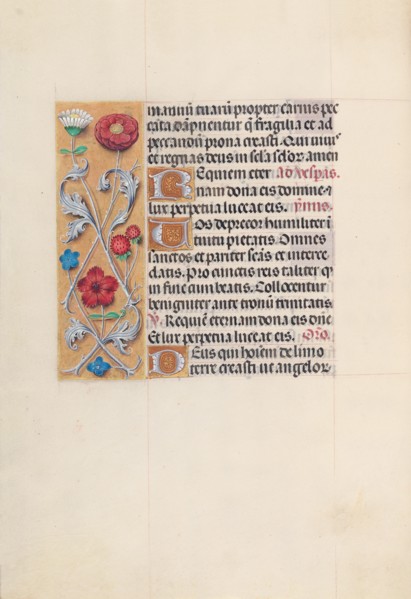 manuũ tuarũ propter carnis pec
cata dãpnentur q̃ fragilia et ad
peccandũ prona creasti. Qui viuis
et regnas deus in scl̃a scl̃or amen
Requiem eter ad vespas.
nam dona eis domine et
lux perpetua luceat eis. ymnis.
Vos deprecor humiliter ĩ
tuitu pietatis. Omnes
sanctos et pariter scãs ut interce
datis. Pro cunctis reis taliter qͥ
in fine cum beatis. Collocentur
benigniter ante tronũ trinitatis
V. Requiẽ eternam dona eis dñe
Et lux perpetua luceat eis. Orõ.
Deus qui hoĩem de limo
terre creasti ut angelor